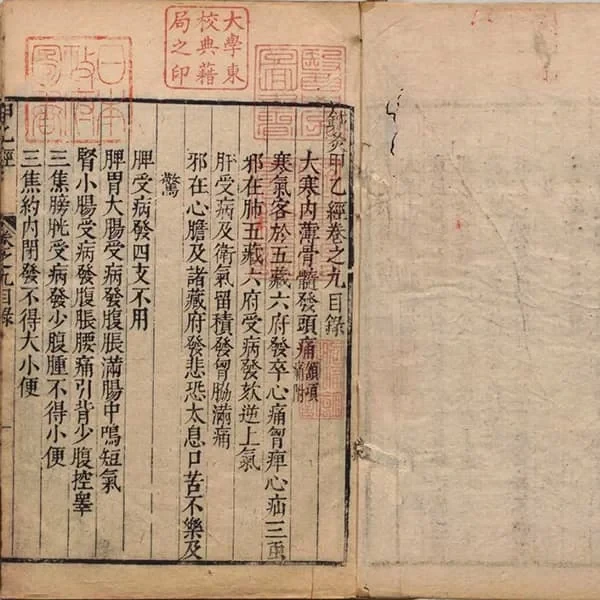 大學東
校典藉
局之印
日本
政府
圖書
鍼灸甲乙經卷之九目錄
大寒內薄骨髓發頭痛頷項痛附
寒氣客於五藏六府發卒心痛胷痺心疝三
邪在肺五藏六府受病發欬逆上氣
肝受病及衛氣留積發胷脇滿痛
邪在心膽及諸藏府發悲恐太息口苦不樂及
驚
脾受病發四支不用
脾胃大腸受病發腹脹滿腸中鳴短氣
腎小腸受病發腹脹腰痛引背少腹控睾
三焦膀胱受病發少腹腫不得小便
三焦約內閉發不得大小便
甲乙經
卷之九目錄